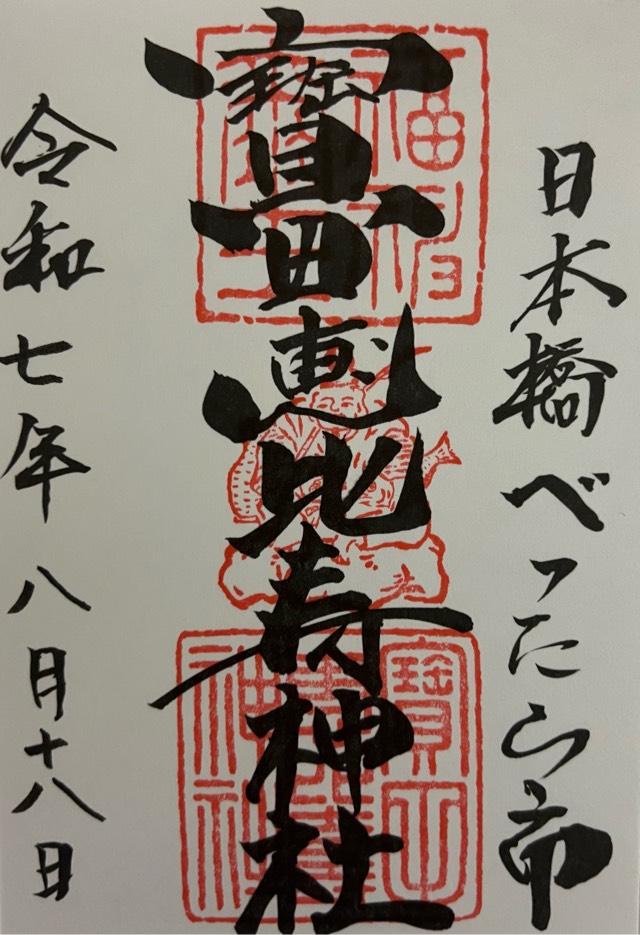 日本橋べったら市
寳田恵比寿神社
令和七年八月十八日